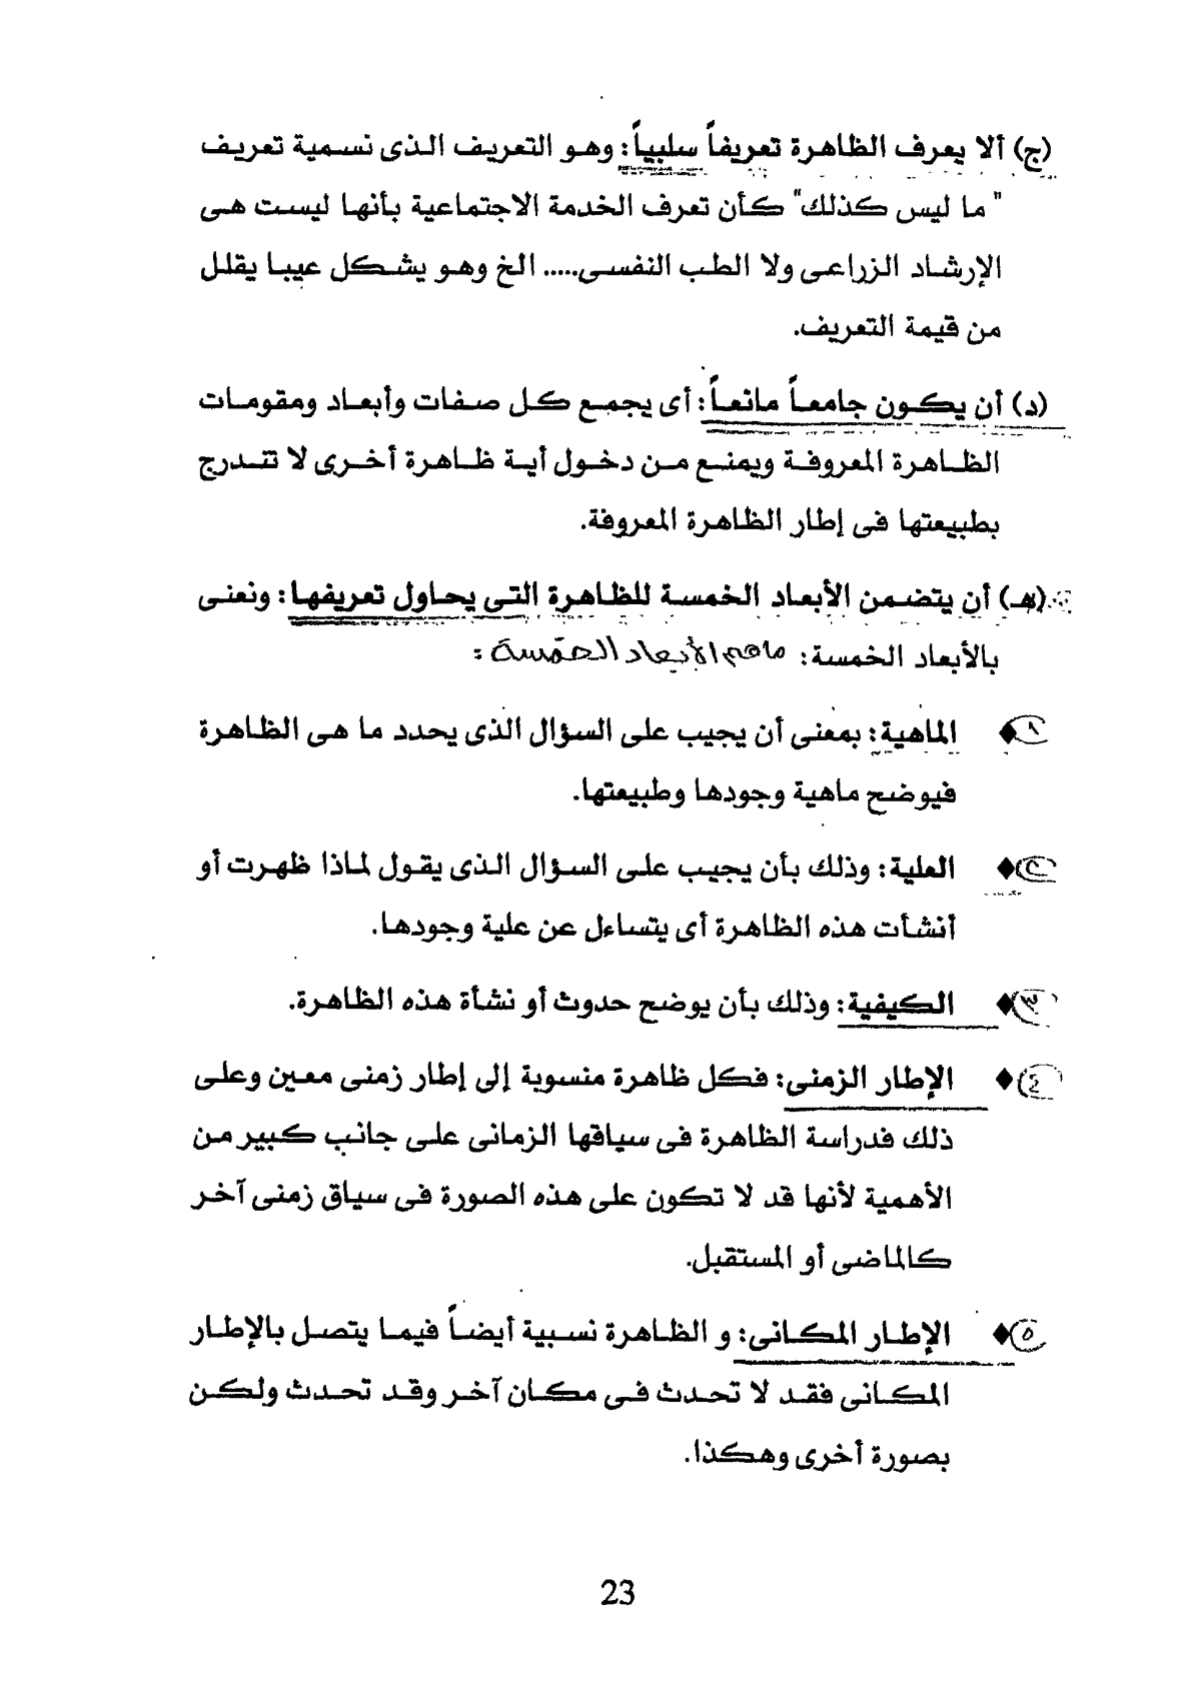 (ج) ألا يعرف الظاهرة تعريفاً سلبياً: وهو التعريف الذى نسمية تعريف
" ما ليس كذلك" كأن تعرف الخدمة الاجتماعية بأنها ليست هى
الإرشاد الزراعى ولا الطب النفسى..... الخ وهو يشكل عيبا يقلل
من قيمة التعريف.
(د) أن يكون جامعاً مانعاً: أى يجمع كل صفات وأبعاد ومقومات
الظاهرة المعروفة ويمنع من دخول أية ظاهرة أخرى لا تتدرج
بطبيعتها فى إطار الظاهرة المعروفة.
(هـ) أن يتضمن الأبعاد الخمسة للظاهرة التى يحاول تعريفها: ونعنى
بالأبعاد الخمسة: ماهم الأبعاد الخمسة :
١ ♦ الماهية: بمعنى أن يجيب على السؤال الذى يحدد ما هى الظاهرة
فيوضح ماهية وجودها وطبيعتها.
٢ ♦ العلية: وذلك بأن يجيب على السؤال الذى يقول لماذا ظهرت أو
أنشأت هذه الظاهرة أى يتساءل عن علية وجودها.
٣ ♦ الكيفية: وذلك بأن يوضح حدوث أو نشأة هذه الظاهرة.
٤ ♦ الإطار الزمنى: فكل ظاهرة منسوبة إلى إطار زمنى معين وعلى
ذلك فدراسة الظاهرة فى سياقها الزمانى على جانب كبير من
الأهمية لأنها قد لا تكون على هذه الصورة فى سياق زمنى آخر
كالماضى أو المستقبل.
٥ ♦ الإطار المكانى: و الظاهرة نسبية أيضاً فيما يتصل بالإطار
المكانى فقد لا تحدث فى مكان آخر وقد تحدث ولكن
بصورة أخرى وهكذا.
23